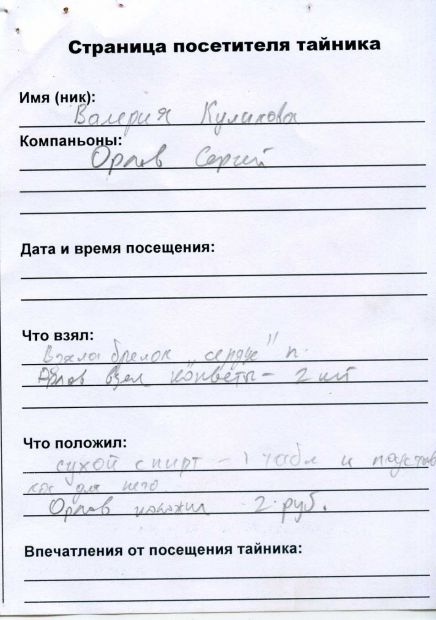 Страница посетителя тайника
Имя (ник):
Валерия Куликова
Компаньоны:
Орлов Сергей
Дата и время посещения:
Что взял:
Взяла брелок „сердце"
Орлов взял конветы - 2 шт
Что положил:
сухой спирт - 1 табл и подстав
ка для него
Орлов положил 2 руб.
Впечатления от посещения тайника: